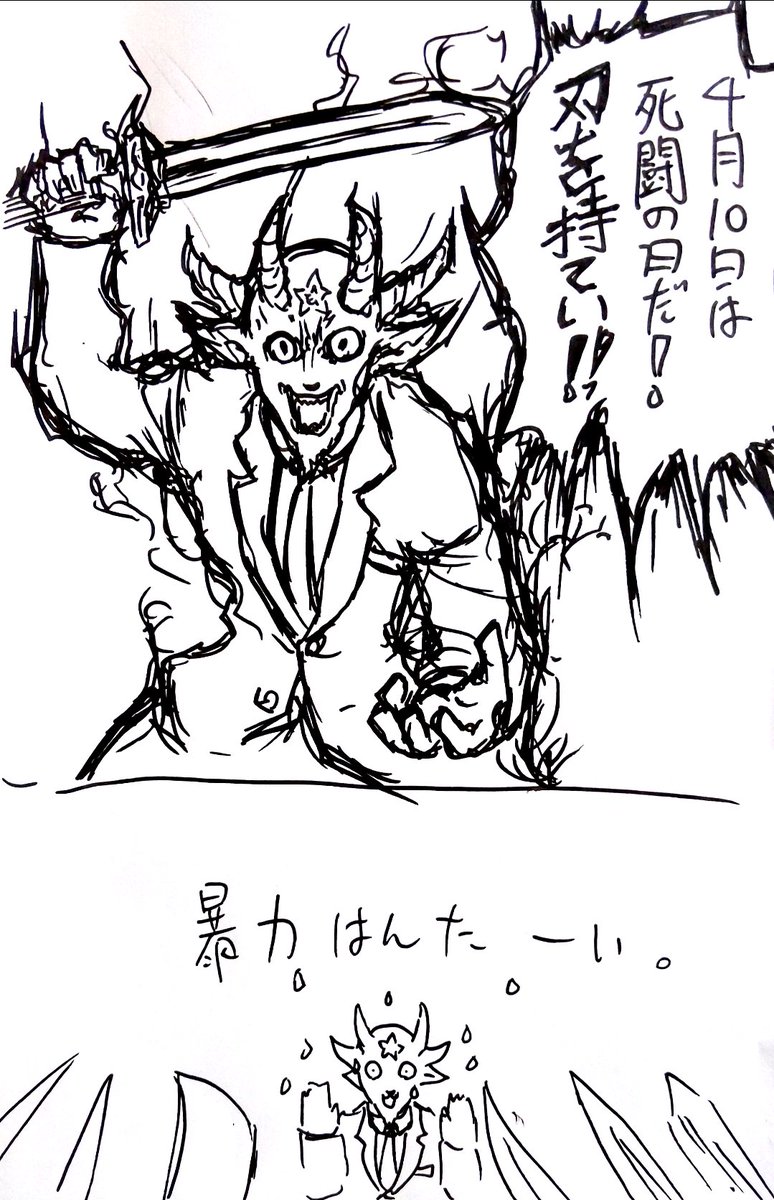 4月10日は
死闘の日だ！。
刃を持てい！！
暴力はんたーい。